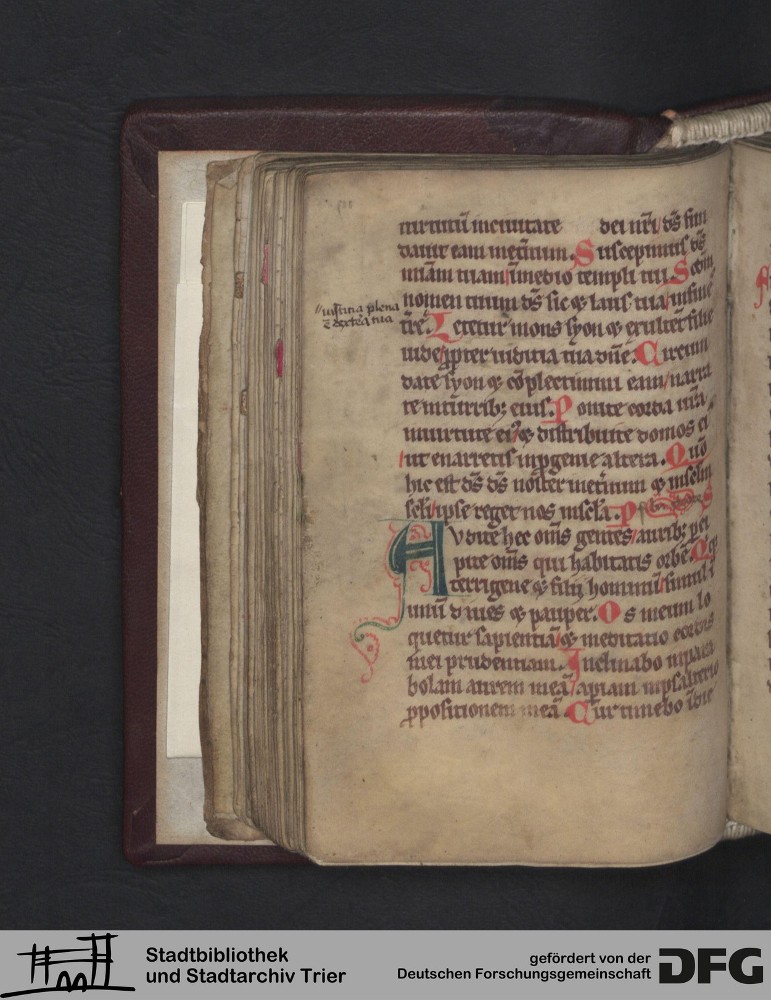 uirtutū in ciuitate dei nr̄i ds̄ fun
dauit eam inet̄num. Suscepimus ds̄
mīam tuam / inmedio templi tui. Scdm
nomen tuum ds̄ sic ⁊ laus tua / infines
iusticia plena
ē dextera tua
tr̄e. Letetur mons syon ⁊ exultent filie
iude / ꝓpter iudicia tua dn̄e. Circum
date syon ⁊ cōplectimini eam / narra
te inturrib; eius. Ponite corda ur̄a
inuirtute ei⁹ / ⁊ distribuite domos ei⁹
/ ut enarretis inꝓgenie altera. Qm̄
hic est ds̄ ds̄ noster inet̄num ⁊ inselm
seli / ipse reget nos insecl̄a.
Audite hec om̄s gentes / aurib; per
cipite om̄s qui habitatis orbē. Qꝗ
terrigene ⁊ filij hominū / simul i
unū diues ⁊ pauper. Os meum lo
quetur sapientiā / ⁊ meditatio cordis
mei prudentiam. Inclinabo inpara
bolam aurem meā / apiam inpsalterio
ꝓpositionem meā. Cur timebo in die
Stadtbibliothek
und Stadtarchiv Trier
gefördert von der
Deutschen Forschungsgemeinschaft
DFG